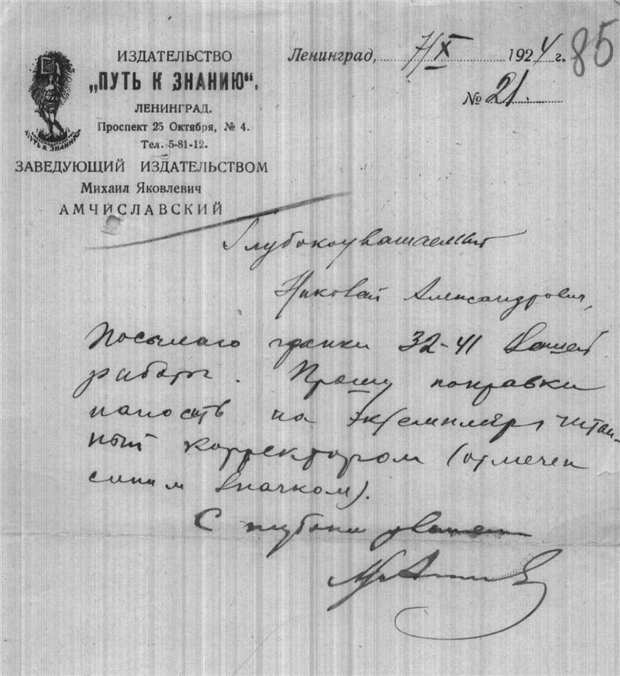 85
ИЗДАТЕЛЬСТВО
„ПУТЬ К ЗНАНИЮ“.
ЛЕНИНГРАД.
Проспект 25 Октября, № 4.
Тел. 5-81-12.
ЗАВЕДУЮЩИЙ ИЗДАТЕЛЬСТВОМ
Михаил Яковлевич
АМЧИСЛАВСКИЙ
ПУТЬ К ЗНАНИЮ
Ленинград, 7/X 1924 г.
№ 21.
Глубокоуважаемый
Николай Александрович,
Посылаю гранки 32-41 Вашей
работы. Прошу поправки
наносить на экземпляр читан-
ный корректором (отмечен
синим значком).
С глубоким